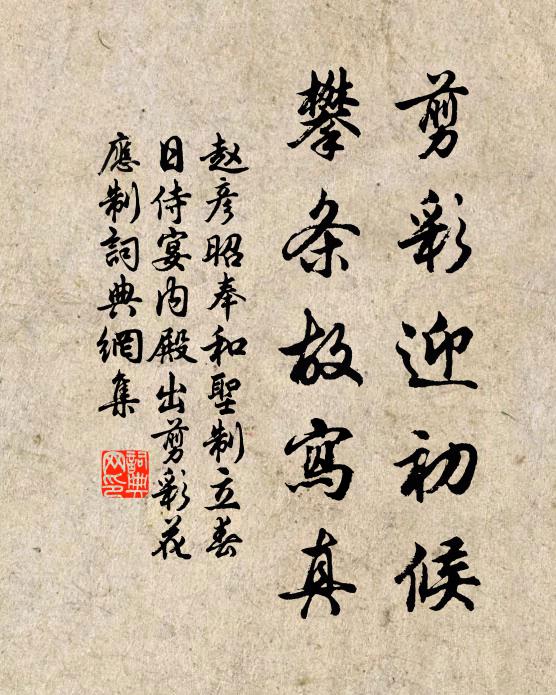 剪彩迎初候
攀条故寫真
赵彦昭奉和聖制立春
日侍宴内殿出剪彩花
應制詞典網集
詞典
网印